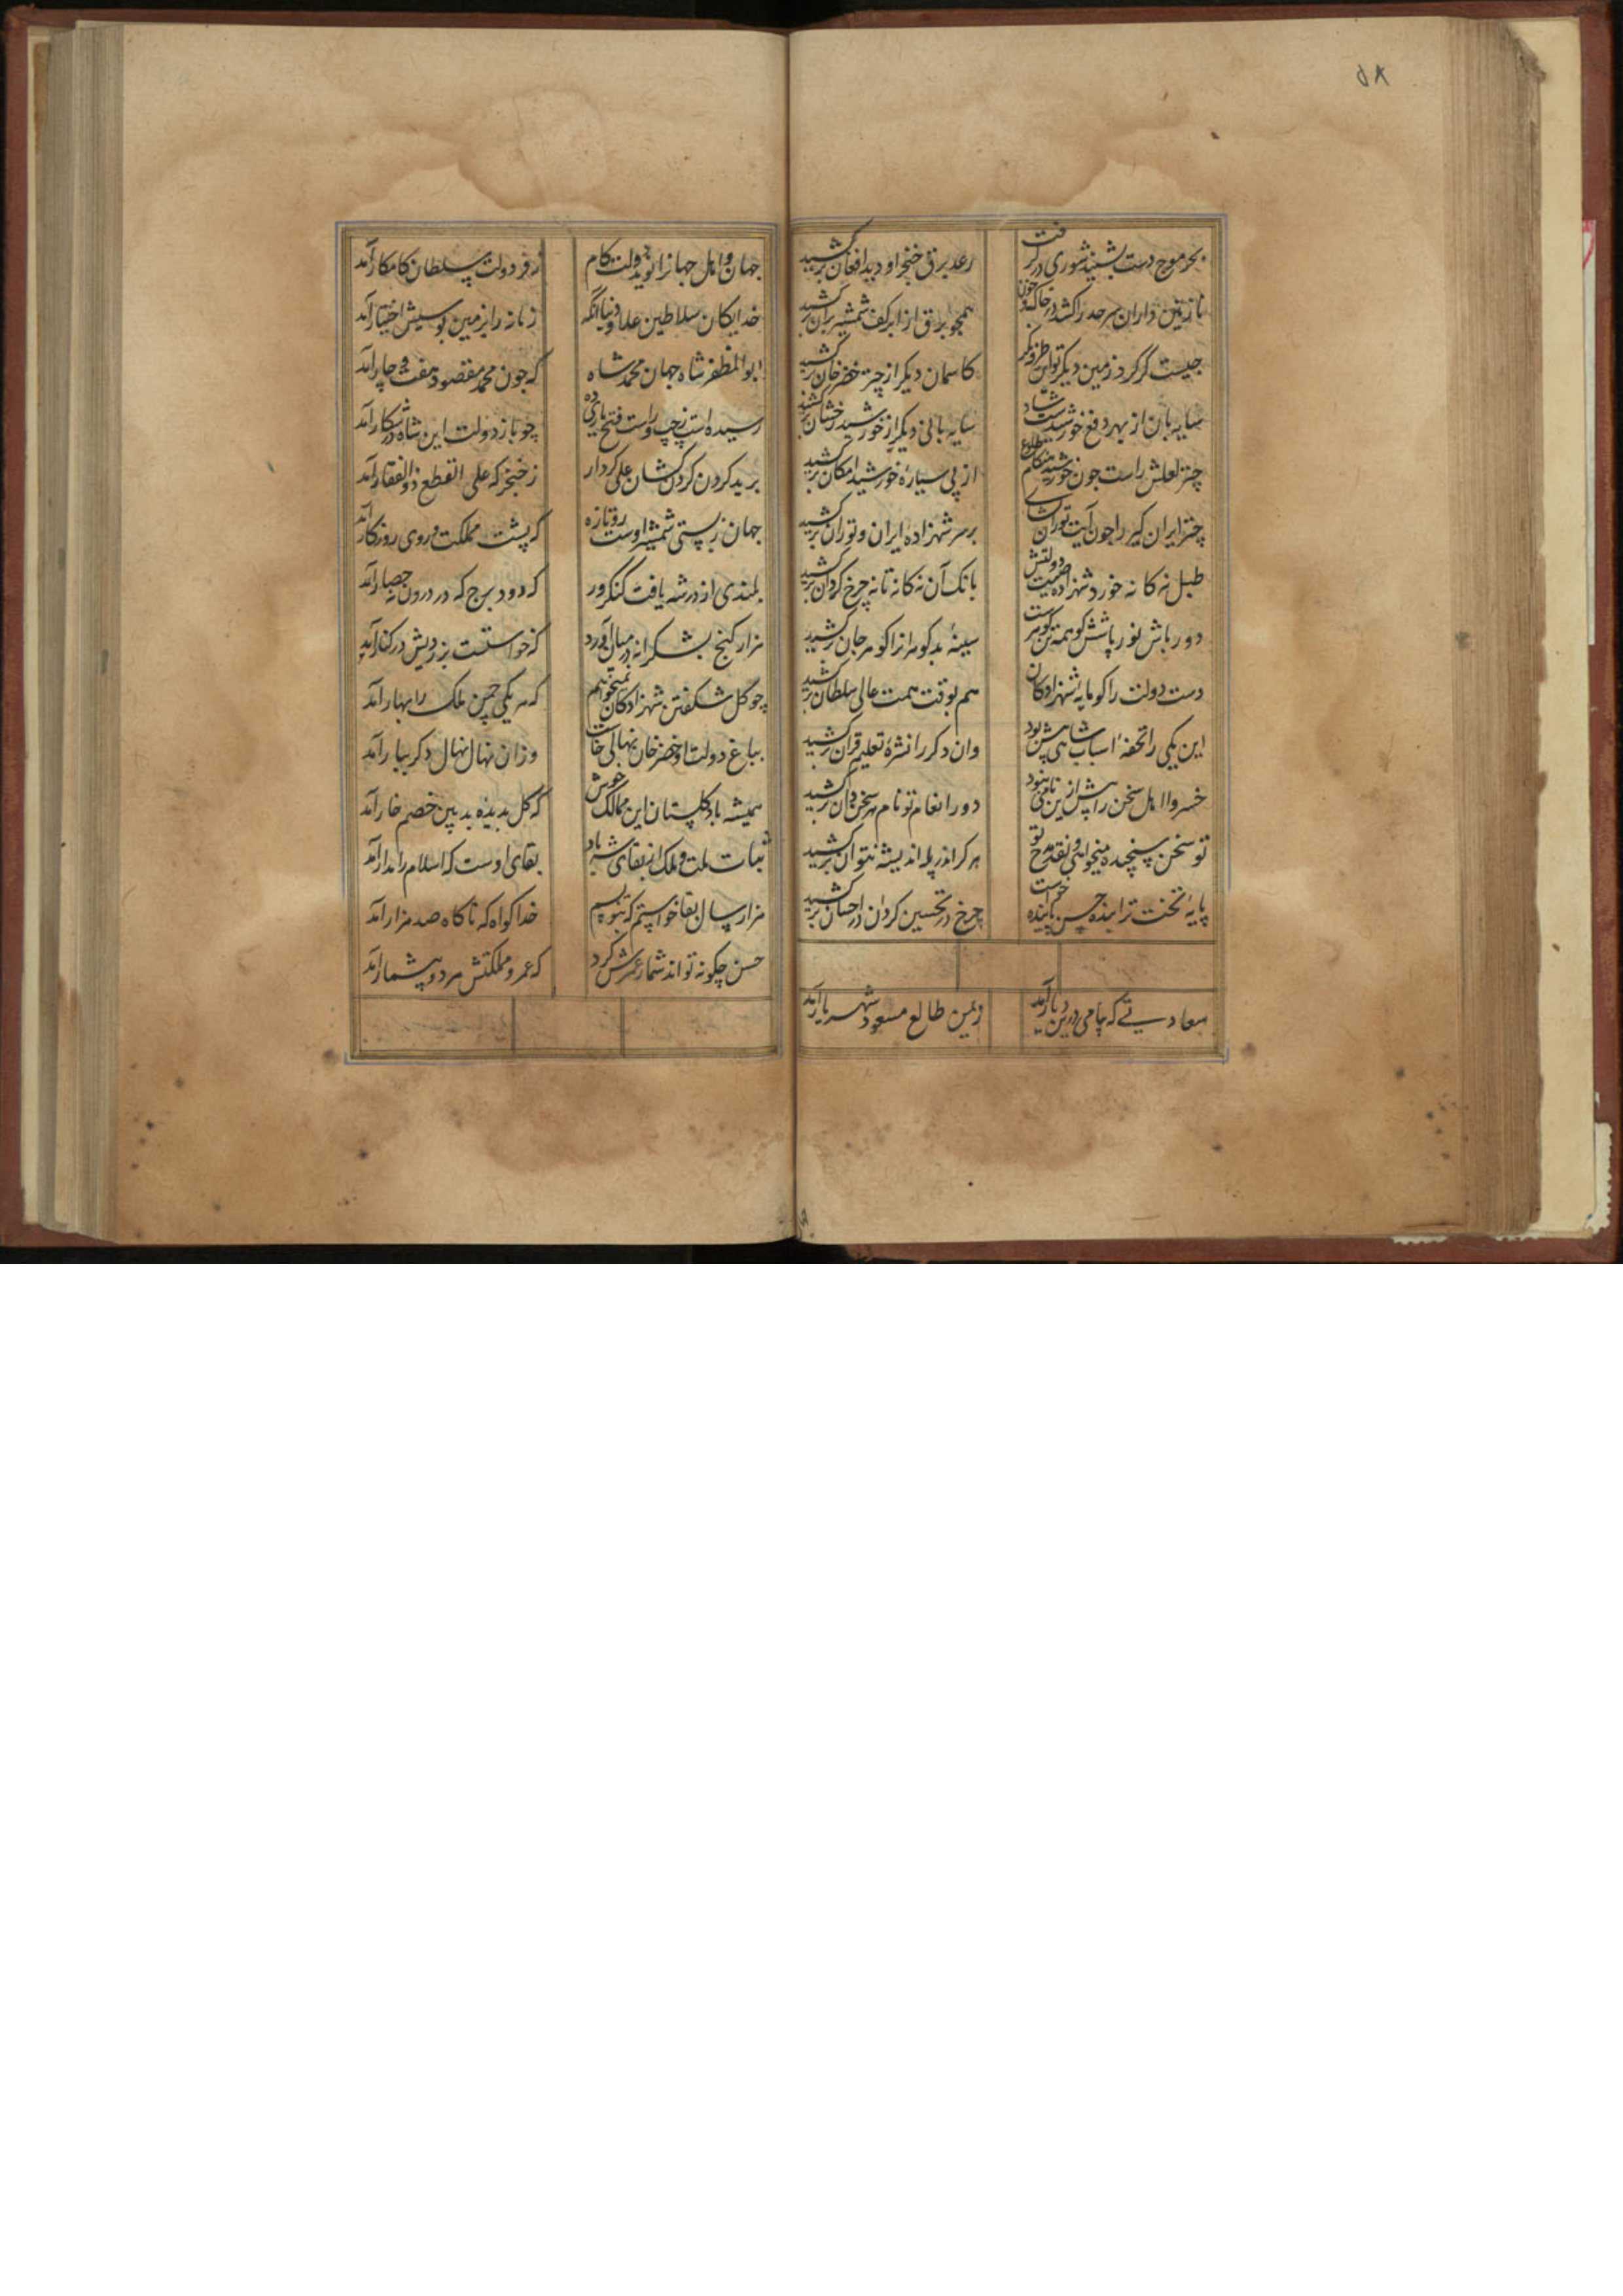 ۵۸
بحر موج دست بشنید شوری در گرفت رعد برق خنجر او دید افغان برکشید
تا زمین داران سرحد را کشد در خاک و خون همچو برق از ابر کف شمشیر بران برکشید
چیست گر گردد زمین دیگر تو این طرفه نگر کاسمان دیگر از چتر خضر خان برکشید
سایه بان از بهر دفع خورشیدست شاد سایه بانی دیگر از خورشید رخشان برکشید
چتر لعلش راست چون خورشید هنگام طلوع از پی سیارهٔ خورشید امکان برکشید
چتر ایران گیر را چون آیت توران برسر شهزادهٔ ایران و توران برکشید
طبل نه کانه خورد شهزاده صیت دولتش بانک آن نه کانه تا نه چرخ کردان برکشید
دور باش نور پاشش کو همه تن کوهرست سینهٔ بد کوهرانرا کوهر جان برکشید
دست دولت را کو مایه شهزادکان هم بوقت همت عالی سلطان برکشید
این یکی را تحفهٔ اسباب شاهی پیش بود وان دکر را نشرهٔ تعلیم قران برکشید
خسروا اهل سخن را پیش ازین نامی نبود دور انعام تو نام هر سخن دان برکشید
تو سخن سنجیده میخواهی و نقد مدح تو هر کرا در پله اندیشه نتوان برکشید
پایهٔ تخت ترا بنده حسن پاینده خواست چرخ در تحسین کردان در احسان برکشید
سعادتی که چامی درین دیار آمد زیمن طالع مسعود شهریار آمد
جهان و اهل جهانرا نوید دولت کام زفر دولت سلطان کامکار آمد
خدایکان سلاطین علاء دنیا آنکه زمانه را بزمین بوسیش اختیار آمد
ابوالمظفر شاه جهان محمد شاه که چون محمد مقصود هفت و چار آمد
رسیده است ز چپ و راست فتح یاری ده چو باز دولت این شاه در شکار آمد
برید کردن کردن کشان علی کردار ز خنجر که علی القطع ذوالفقار آمد
جهان ز پستی شمشیر اوست رو تازه که پشت مملکت و روی روزکار آمد
بلندی از در شه یافت کنکرور که دود برج که در درون حصار آمد
هزار کنج بشکرانه در میان آورد که خواست بزرویش در کنار آمد
چو کل شکفتن شهزادکان نمیخواهم که هر یکی چمن ملک را بهار آمد
بباغ دولت او خضر خان نهالی خاست وزان نهال نهال دکر ببار آمد
همیشه باد کلستان این ممالک خوش که کل بدیده بدبین خصم خار آمد
ثبات ملت و ملک از بقای شه باد بقای اوست که اسلام را مدار آمد
هزار سال بقا خواستم که بنویسم خدا کواه که ناکاه صد هزار آمد
حسن چکونه تواند شمار عمرش کرد که عمر و مملکتش هر دو بیشمار آمد